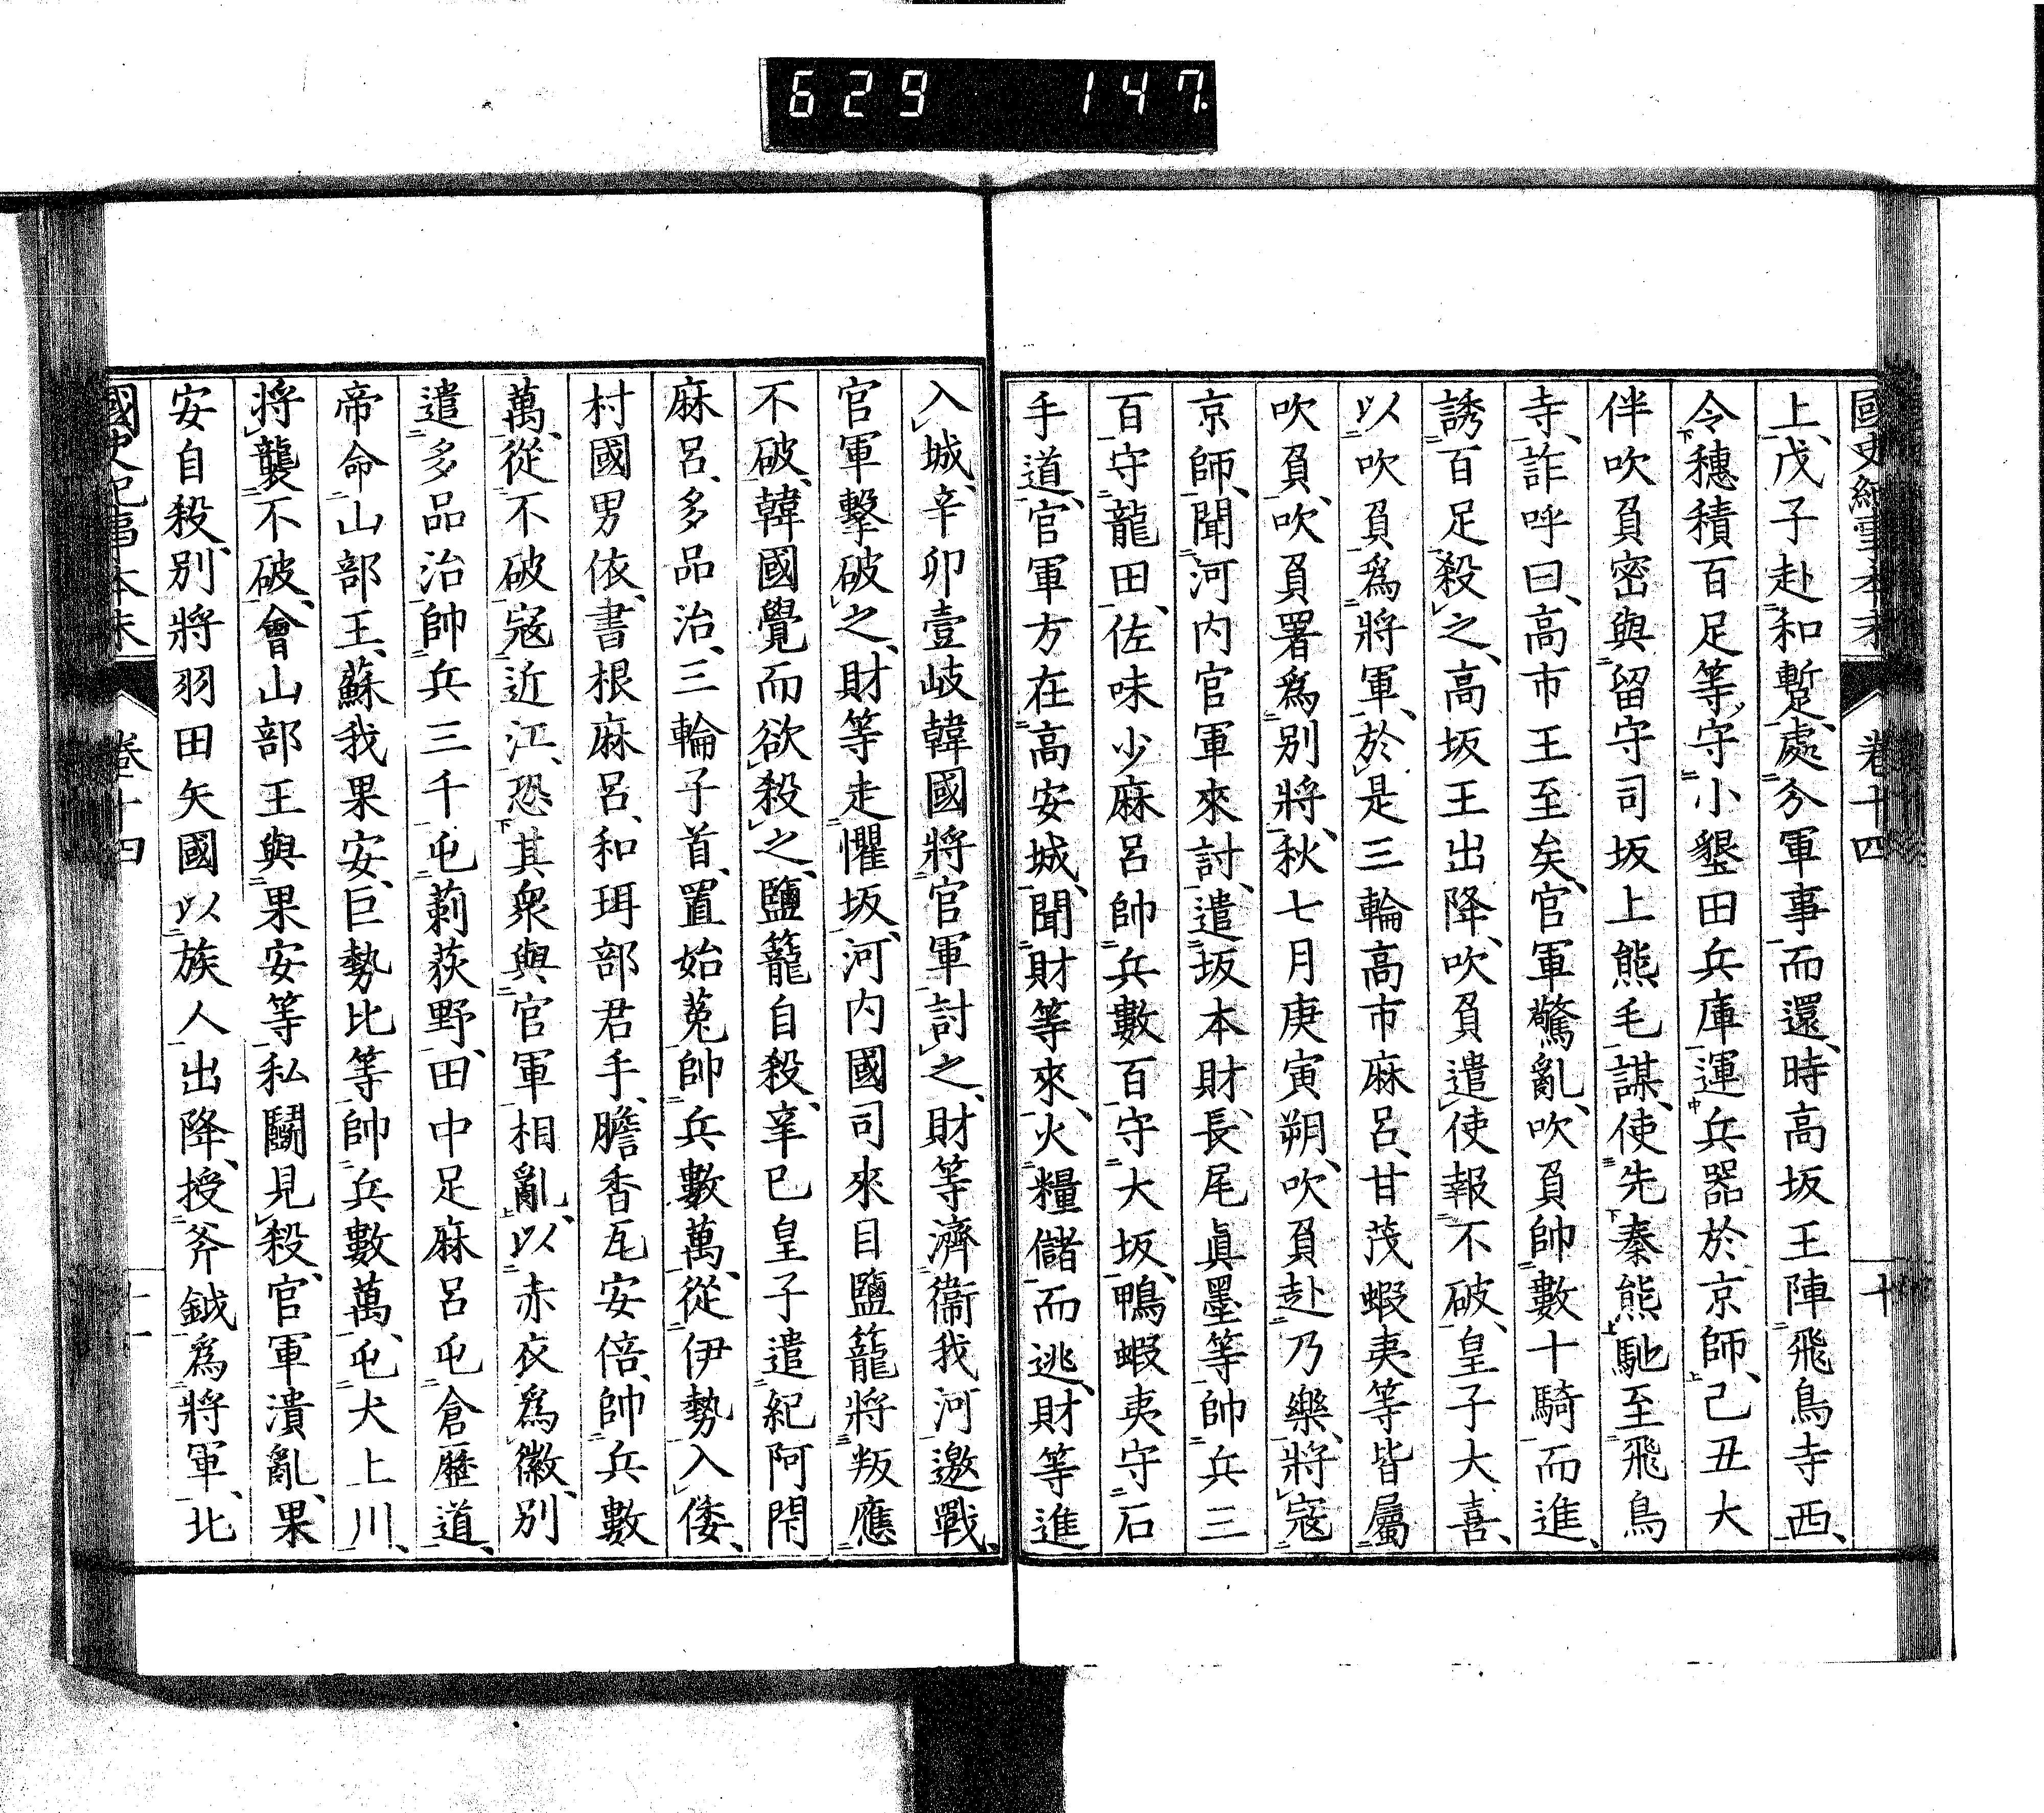 629 147
國史紀事本末 卷十四 十
上、戊子赴和蹔、處分軍事而還、時高坂王陣飛鳥寺西、
令穗積百足等、守小墾田兵庫運兵器於京師、己丑大
伴吹負密與留守司坂上熊毛謀、使先秦熊馳至飛鳥
寺、詐呼曰、高市王至矣、官軍驚亂、吹負帥數十騎而進、
誘百足殺之、高坂王出降、吹負遣使報不破、皇子大喜、
以吹負爲將軍、於是三輪高市麻呂、甘茂蝦夷等皆屬
吹負、吹負署爲別將、秋七月庚寅朔、吹負赴乃樂、將寇
京師、聞河内官軍來討、遣坂本財、長尾眞墨等帥兵三
百守龍田、佐味少麻呂帥兵數百守大坂、鴨蝦夷守石
手道、官軍方在高安城、聞財等來、火糧儲而逃、財等進
入城、辛卯壹岐韓國將官軍討之、財等濟衞我河邀戰、
官軍擊破之、財等走懼坂、河内國司來目鹽籠將叛應
不破、韓國覺而欲殺之、鹽籠自殺、辛巳皇子遣紀阿閇
麻呂、多品治、三輪子首、置始菟帥兵數萬、從伊勢入倭、
村國男依、書根麻呂、和珥部君手、膽香瓦安倍、帥兵數
萬、從不破寇近江、恐其衆與官軍相亂、以赤衣爲徽、別
遣多品治帥兵三千屯莿萩野、田中足麻呂屯倉歷道、
帝命山部王、蘇我果安、巨勢比等帥兵數萬、屯犬上川、
將襲不破、會山部王與果安等私鬭見殺、官軍潰亂、果
安自殺、別將羽田矢國以族人出降、授斧鉞爲將軍、北
國史紀事本末 卷十四 十一